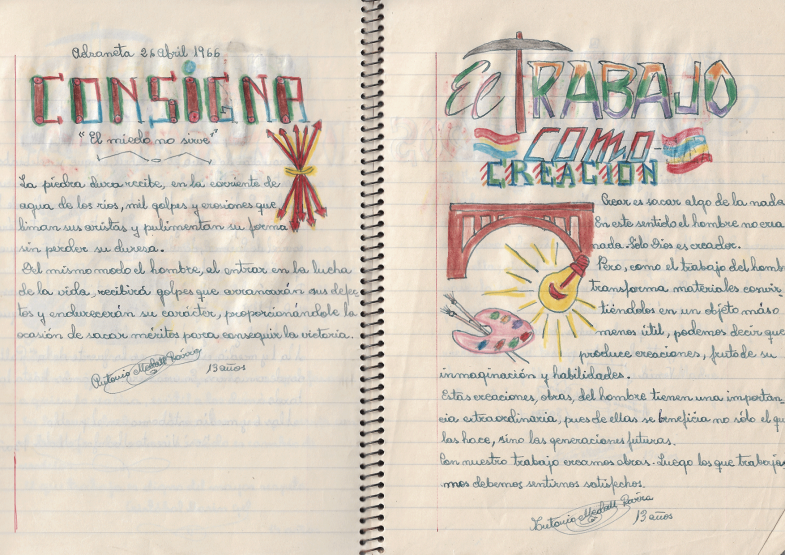 Adzaneta 26 Abril 1966
CONSIGNA
"El miedo no sirve"
La piedra dura recibe, en la corriente de
agua de los rios, mil golpes y erosiones que
liman sus aristas y pulimentan su forma
sin perder su duresa.
Del mismo modo el hombre, al entrar en la lucha
de la vida, recibirá golpes que arrancarán sus defec-
tos y endurecerán su carácter, proporcionándole la
ocasión de sacar méritos para conseguir la victoria.
Antonio
13 años
El TRABAJO
COMO
CREACIÓN
Crear es sacar algo de la nada
En este sentido el hombre no crea
nada. Sólo Dios es creador.
Pero, como el trabajo del homb
transforma materiales convir-
tiéndolos en un objeto más o
menos útil, podemos decir que
produce creaciones, fruto de su
inmaginación y habilidades.
Estas creaciones, obras, del hombre tienen una importan-
cia extraordinaria, pues de ellas se beneficia no sólo el qu
las hace, sino las generaciones futuras.
Con nuestro trabajo creamos obras. Luego los que trabaja-
mos debemos sentirnos satisfechos.
Antonio
13 años